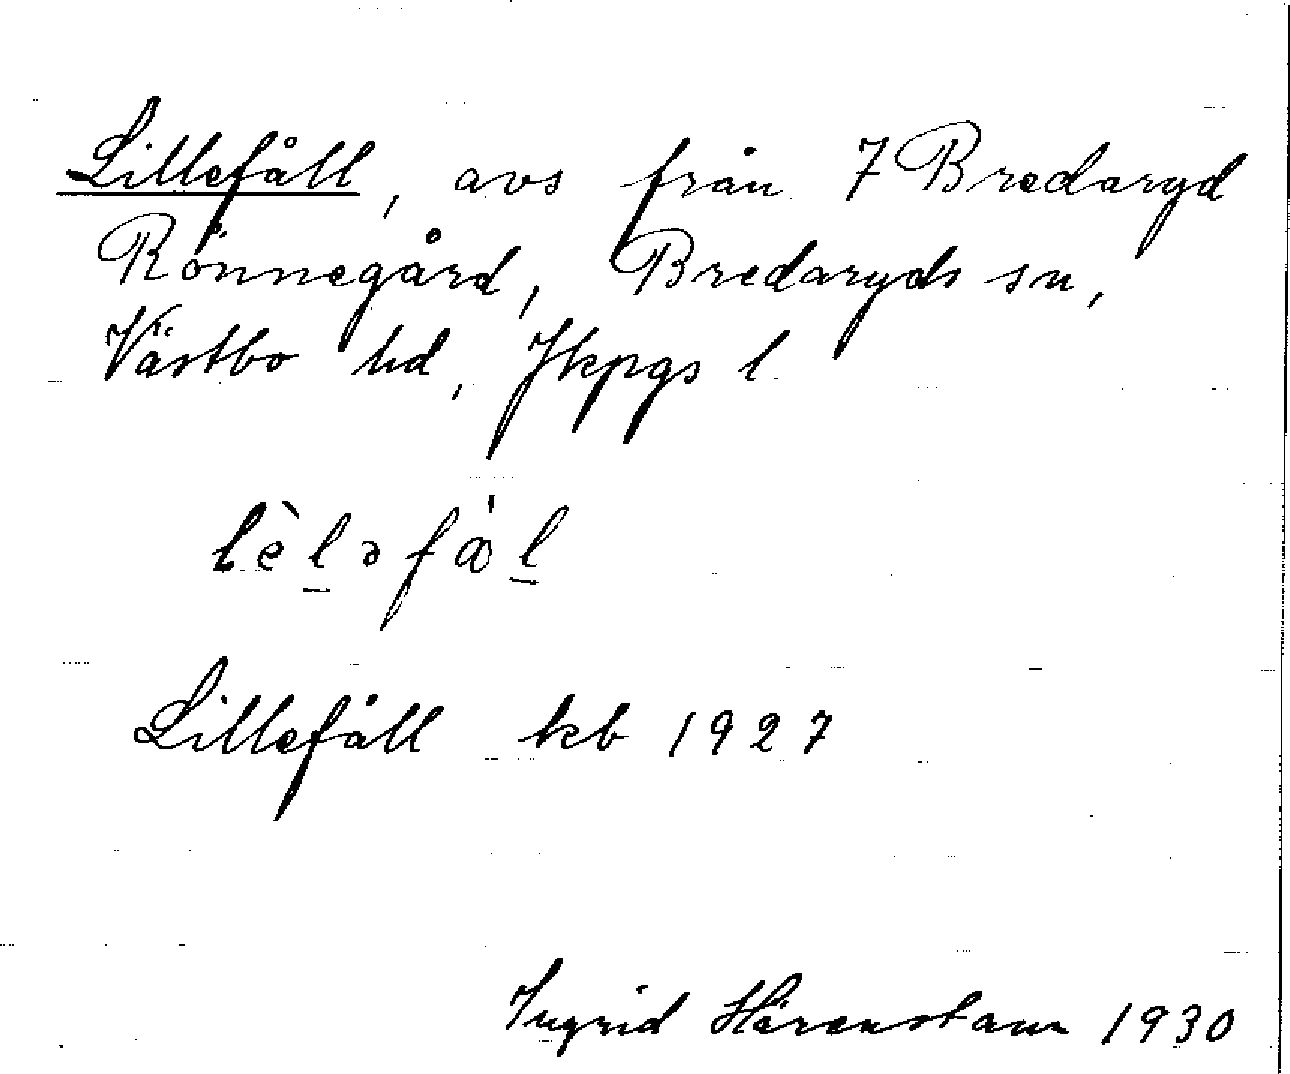 Lillefåll, avs från 7 Bredaryd
Rönnegård, Bredaryds sn,
Västbo hd, Jkpgs l
lèləfàl
Lillefåll kb 1927
Ingrid Härenstam 1930